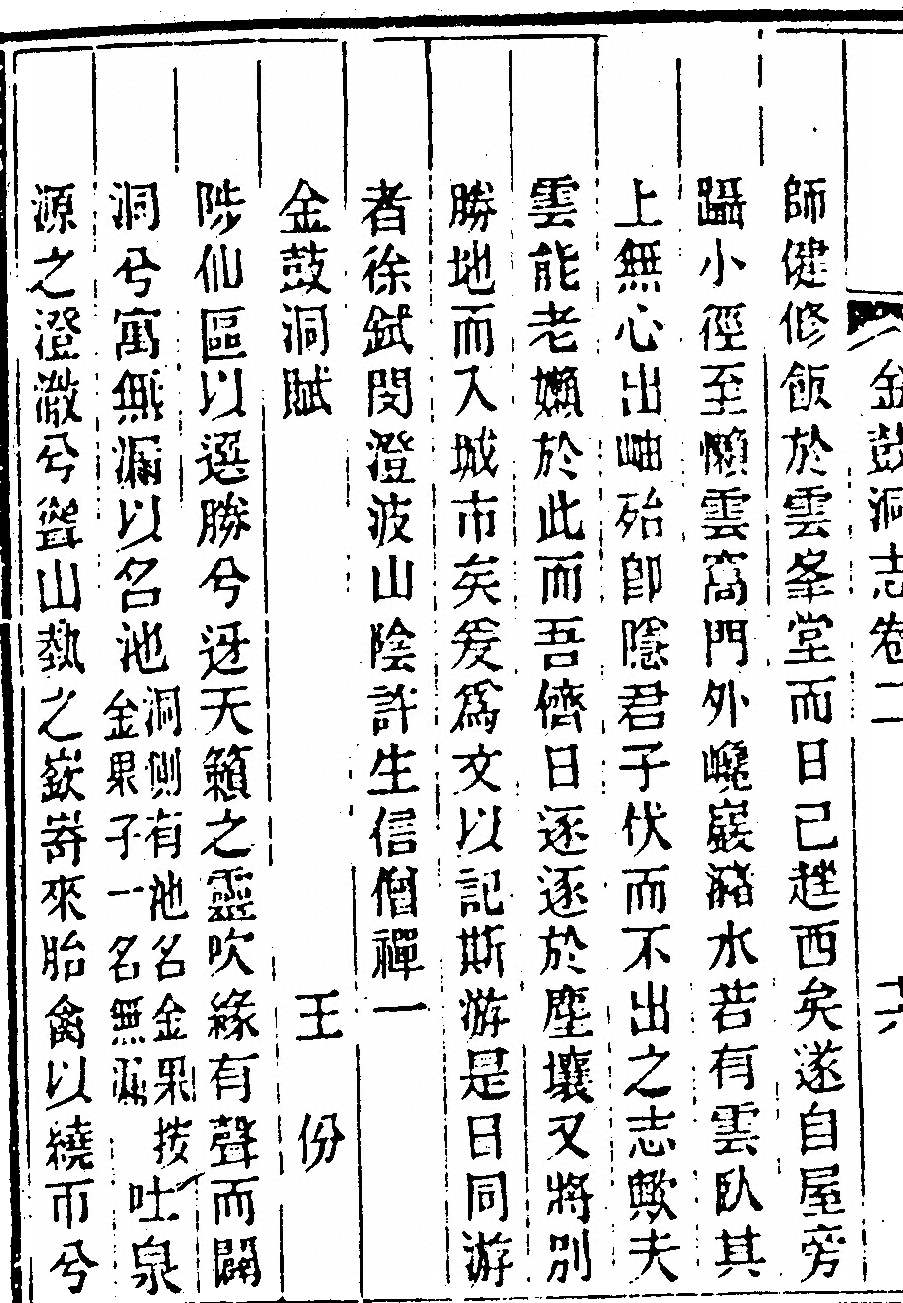 金鼓洞志卷二 十六
師健修飯於雲峯堂而日已趖西矣遂自屋旁
躡小徑至懶雲窩門外巉巖瀦水若有雲臥其
上無心出岫殆卽隱君子伏而不出之志歟夫
雲能老嬾於此而吾儕日逐逐於塵壤又將別
勝地而入城市矣爰爲文以記斯游是日同游
者徐鉽閔澄波山陰許生信僧禪一
金鼓洞賦 王份
陟仙區以選勝兮迓天籟之靈吹緣有聲而闢
洞兮寓無漏以名池洞側有池名金果按金果子一名無漏吐泉
源之澄瀓兮聳山埶之嶔崎來胎禽以繞帀兮